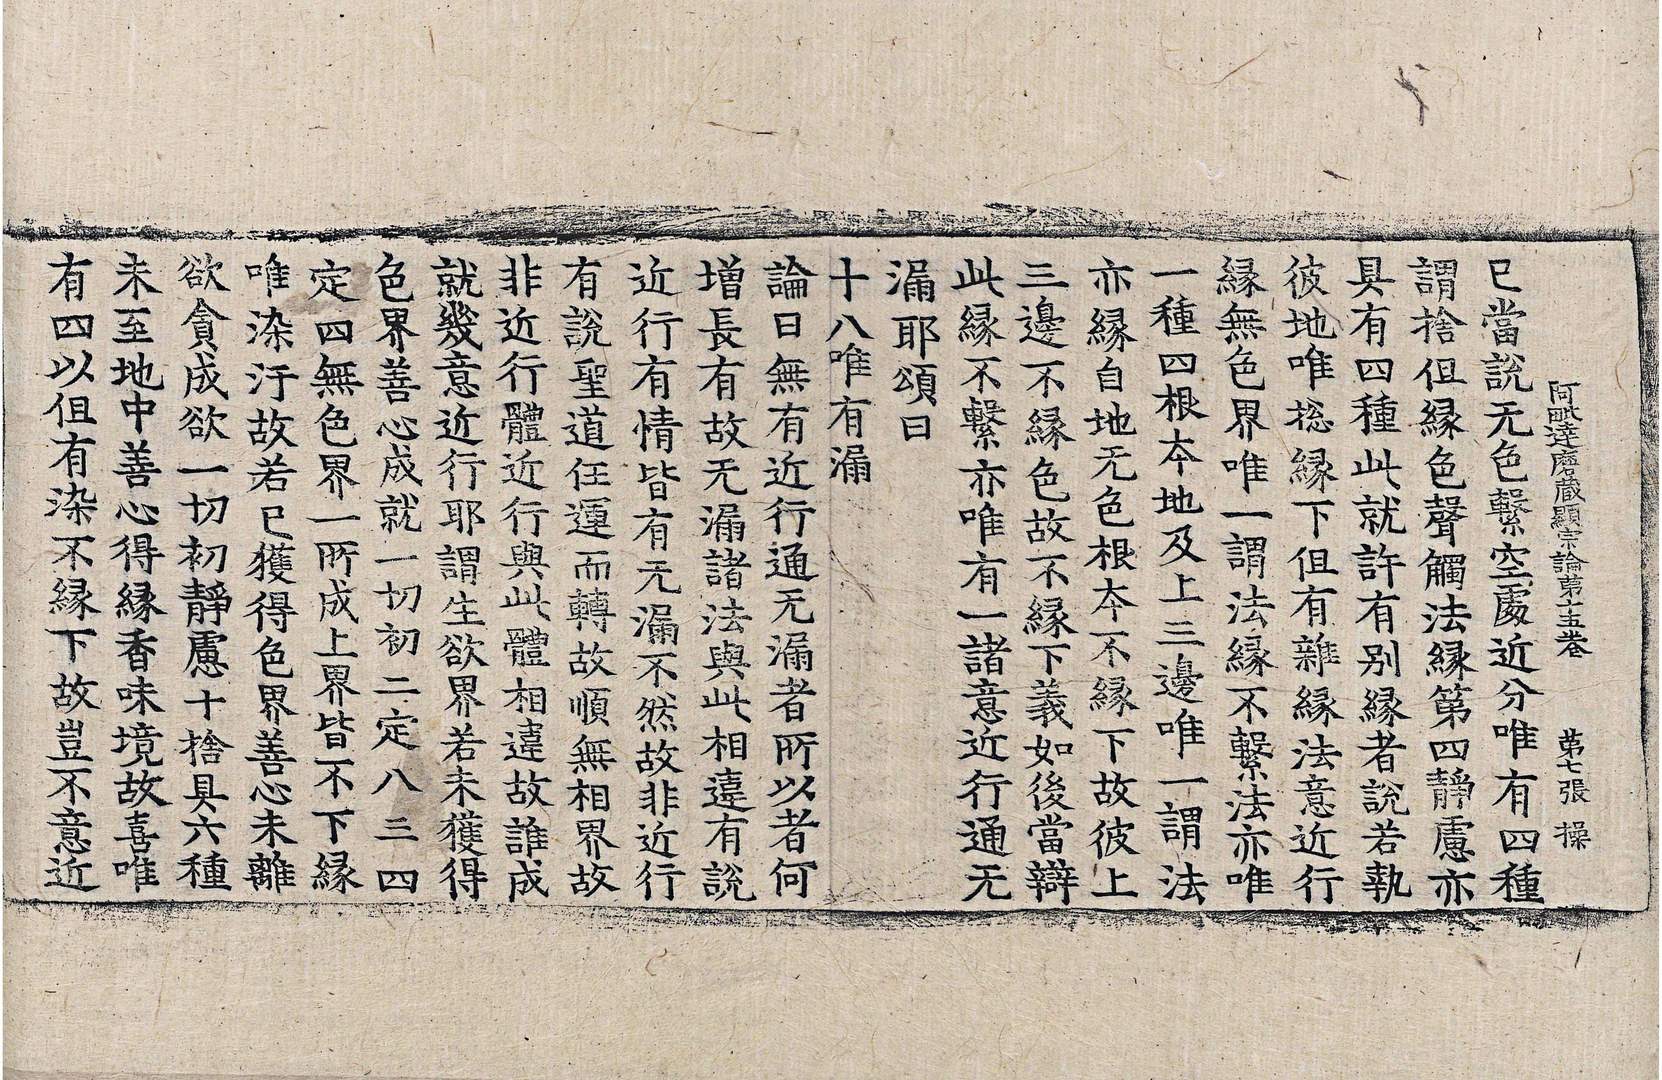 阿毗達磨藏顯宗論第十五卷　第七張　操
已當說无色繫空處近分唯有四種
謂捨但緣色聲觸法緣第四靜慮亦
具有四種此就許有別緣者說若執
彼地唯捴緣下但有雜緣法意近行
緣無色界唯一謂法緣不繫法亦唯
一種四根本地及上三邊唯一謂法
亦緣自地无色根本不緣下故彼上
三邊不緣色故不緣下義如後當辯
此緣不繫亦唯有一諸意近行通无
漏耶頌曰
十八唯有漏
論曰無有近行通无漏者所以者何
增長有故无漏諸法與此相違有說
近行有情皆有无漏不然故非近行
有說聖道任運而轉故順無相界故
非近行體近行與此體相違故誰成
就幾意近行耶謂生欲界若未獲得
色界善心成就一切初二定八三四
定四無色界一所成上界皆不下緣
唯染汙故若已獲得色界善心未離
欲貪成欲一切初靜慮十捨具六種
未至地中善心得緣香味境故喜唯
有四以但有染不緣下故豈不意近